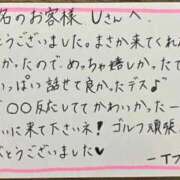 名のお客様 Uさんへ
とうございました。まさか来てくれ
かったので、めっちゃ嬉しかった
いっぱい話せて良かったデス♪
〇〇反だしててかわいかった
いに来て下さいネ! ゴルフ頑張
がとうございました♥